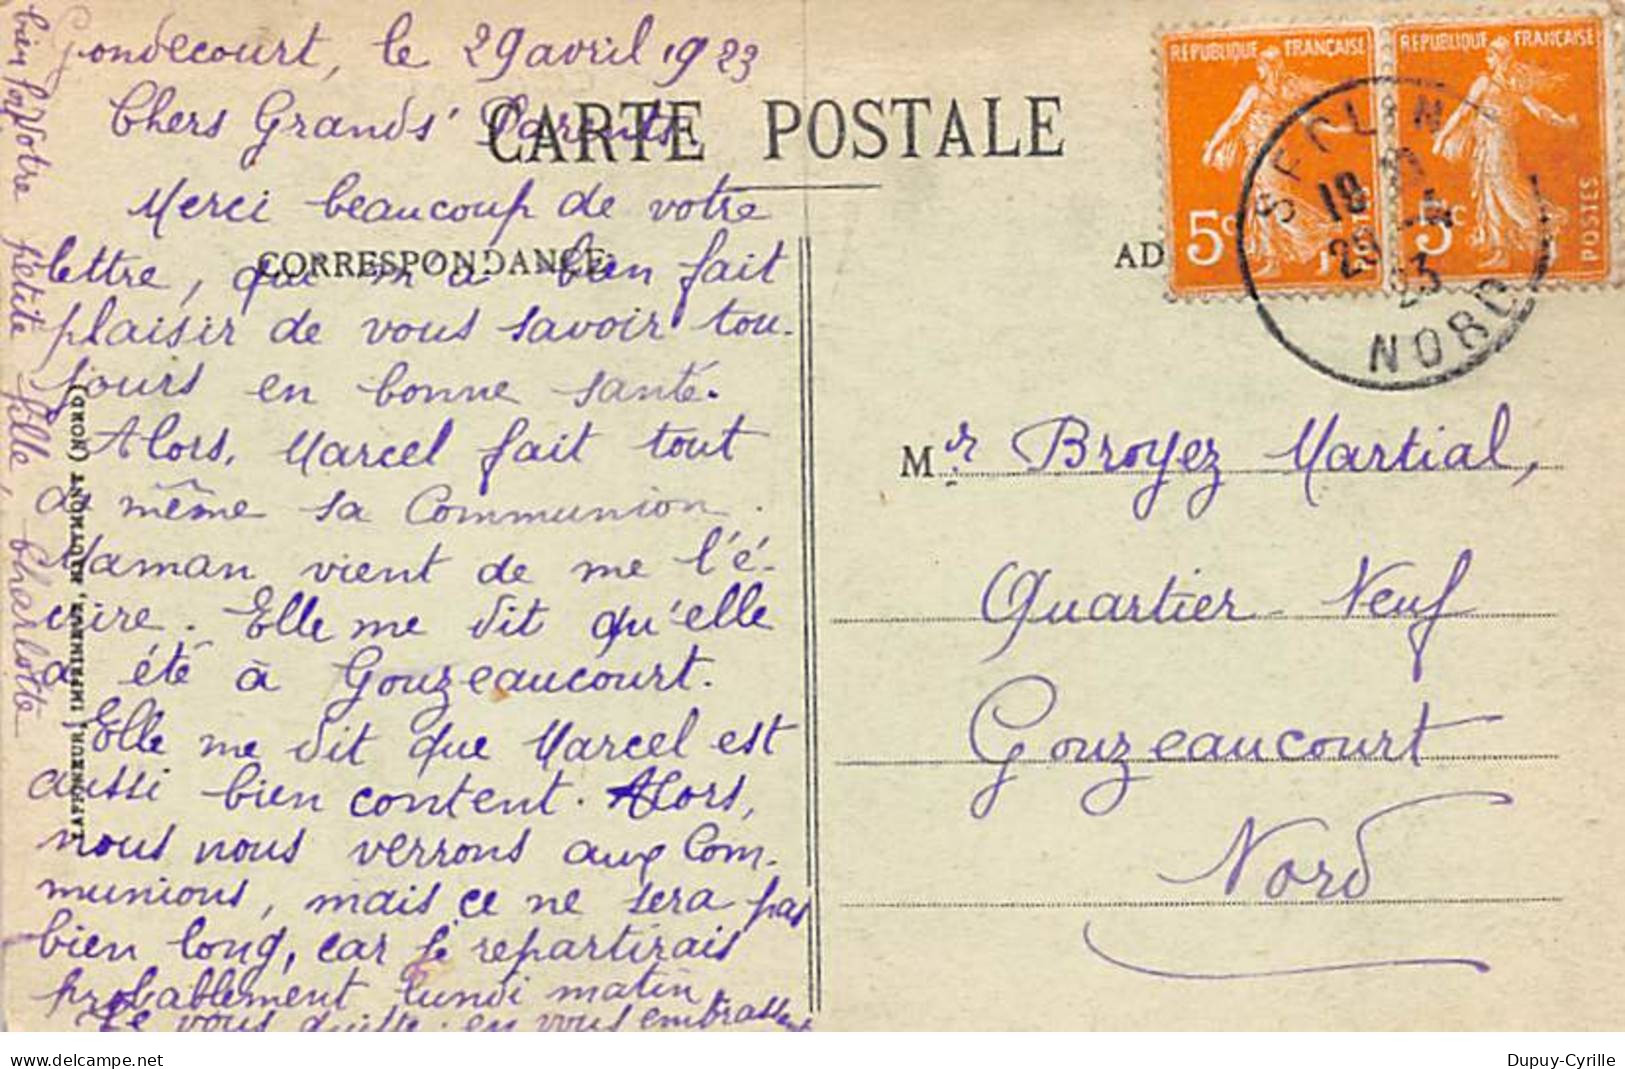 Gondecourt, le 29 avril 1923
Chers Grands' Parents.
Merci beaucoup de votre
lettre, qui m'a bien fait
plaisir de vous savoir tou-
jours en bonne santé.
Alors, Marcel fait tout
de même sa Communion.
Maman vient de me l'é-
crire. Elle me dit qu'elle
a été à Gouzeaucourt.
Elle me dit que Marcel est
aussi bien content. Alors,
nous nous verrons aux Com-
munions, mais ce ne sera pas
bien long, car je repartirais
probablement lundi matin.
Je vous quitte en vous embrassant
bien fort Votre petite fille, Charlotte
CARTE POSTALE
CORRESPONDANCE
AD
LAFFINEUR, IMPRIMEUR, HAUTMONT (NORD)
REPUBLIQUE FRANCAISE
5c
REPUBLIQUE FRANCAISE
5c
POSTES
SECLIN
18
29 -4
23
NORD
Mr Broyez Martial,
Quartier Neuf
Gouzeaucourt
Nord
www.delcampe.net
Dupuy-Cyrille